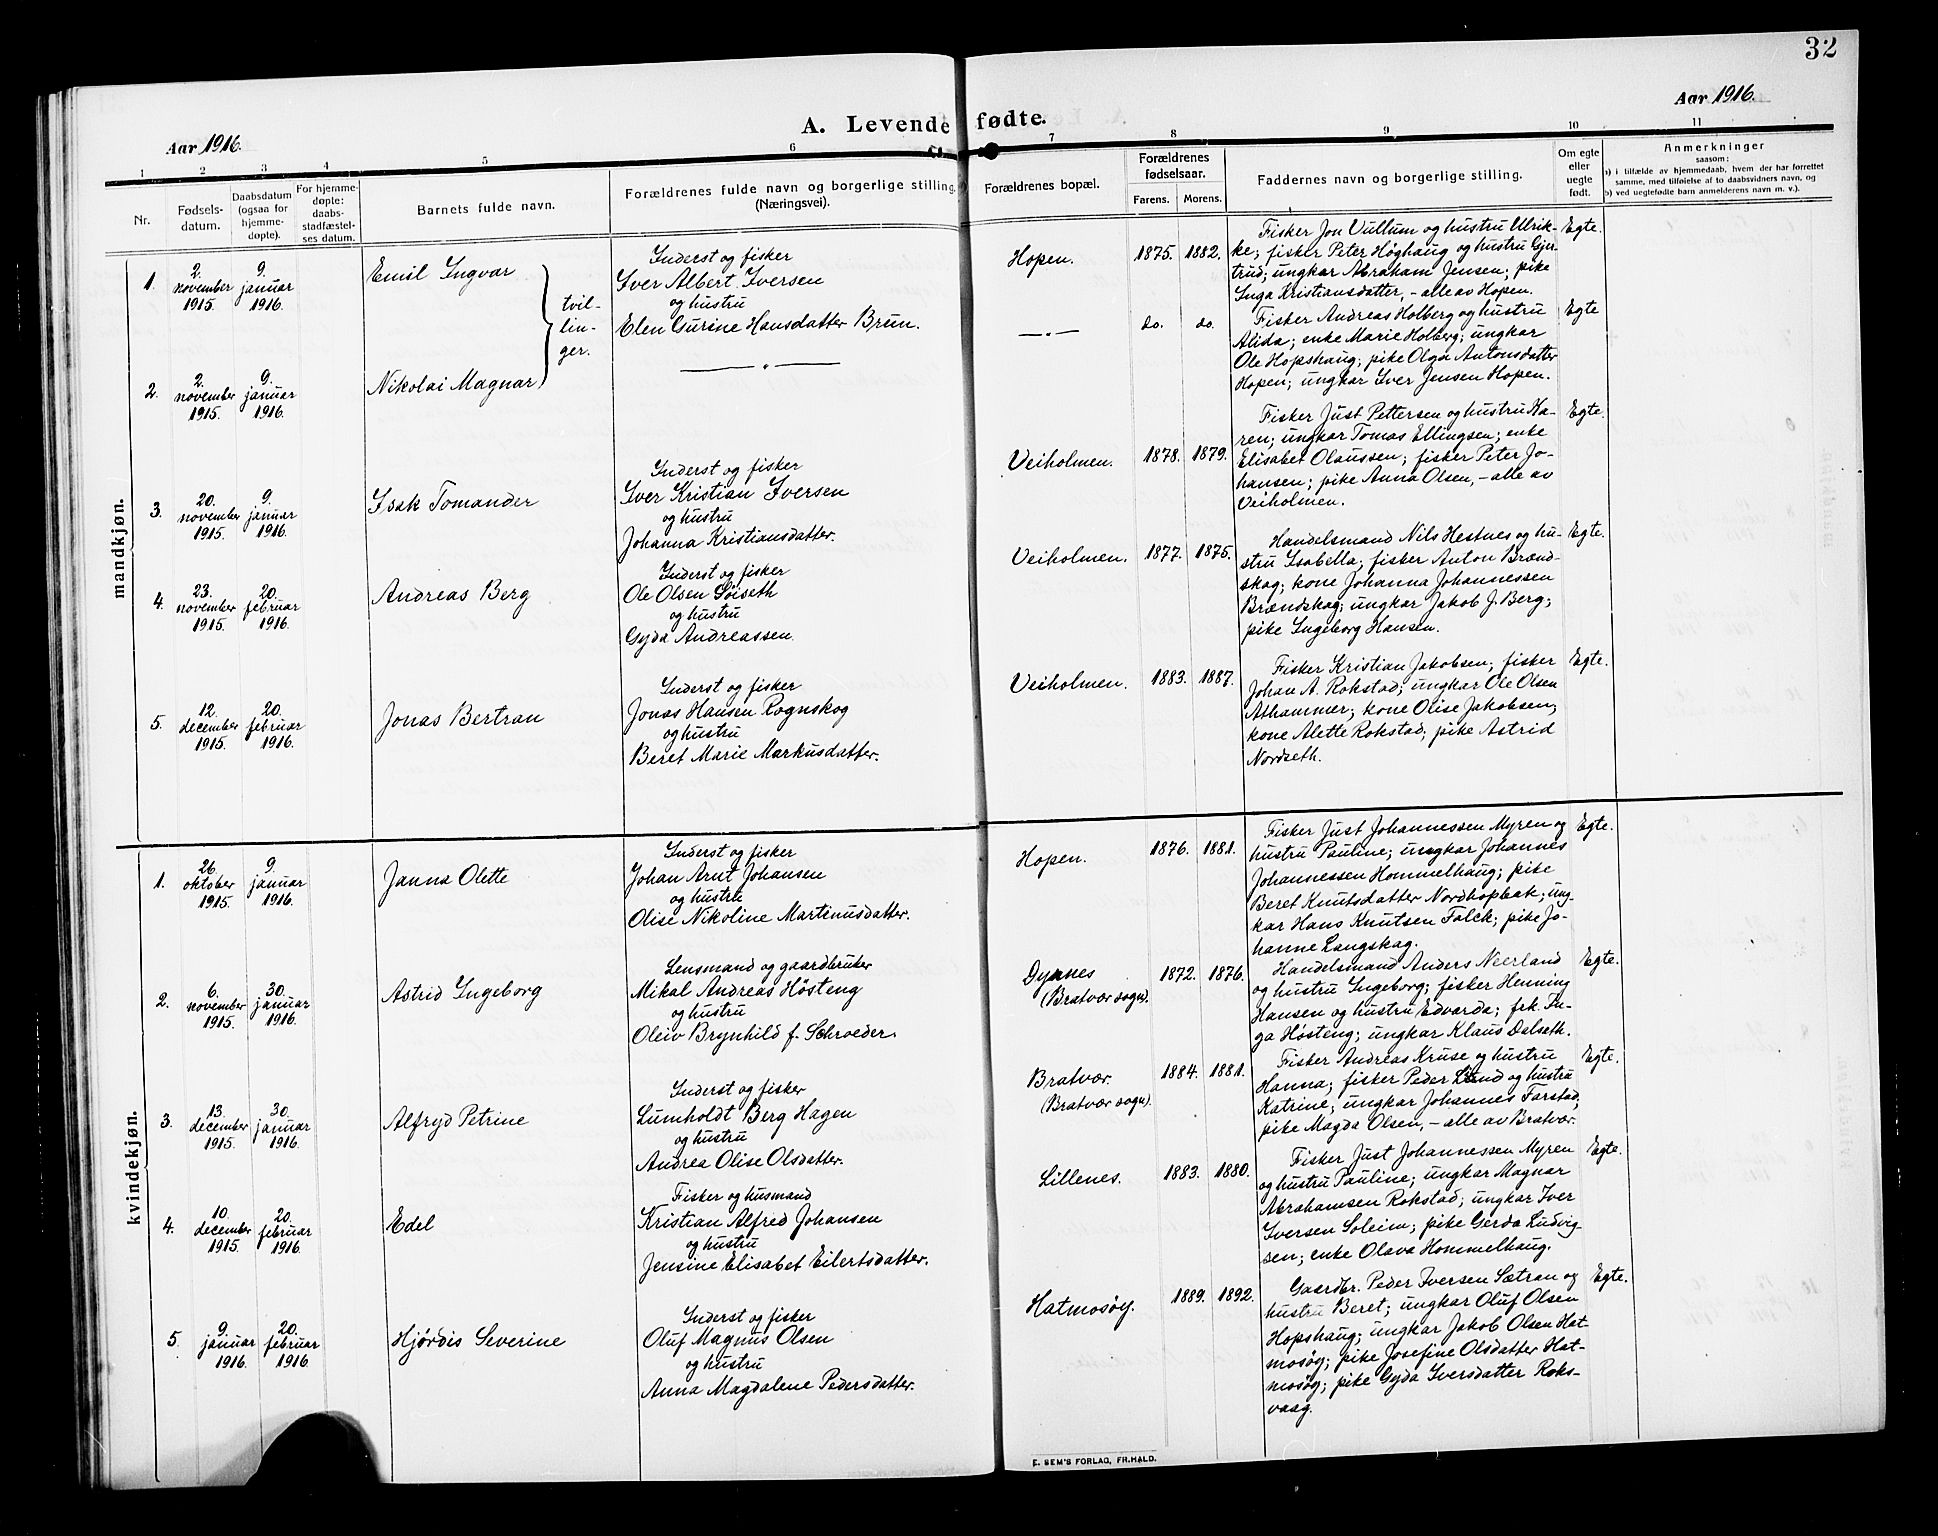 32
Aar 1916.
Aar 1916.
A. Levende fødte.
1 2 3 4 5 6 7 8 9 10 11
Nr.
Fødsels-
datum.
Daabsdatum
(ogsaa for
hjemme-
døpte).
For hjemme-
døpte:
daabs-
stadfæstel-
ses datum.
Barnets fulde navn.
Forældrenes fulde navn og borgerlige stilling.
(Næringsvei).
Forældrenes bopæl.
Forældrenes
fødselsaar.
Farens. Morens.
Faddernes navn og borgerlige stilling.
Om egte
eller
uegte
født.
Anmerkninger
saasom:
a) i tilfælde av hjemmedaab, hvem der har forrettet
samme, med tilføielse af to daabsvidners navn, og
b) ved uegtefødte barn anmelderens navn m. v.).
mandkjøn.
1.
2.
november
1915.
9.
januar
1916.
Emil Ingvar
tvil-
lin-
ger.
Inderst og fisker
Iver Albert Iversen
og hustru
Elen Gurine Hansdatter Brun.
Hopen.
1875. 1882.
Fisker Jon Vullum og hustru Ulrik-
ke; fisker Peter Høghaug og hustru Gjer-
trud; ungkar Abraham Jensen; pike
Inga Kristiansdatter, - alle av Hopen.
Egte.
2.
2.
november
1915.
9.
januar
1916.
Nikolai Magnar
— " —
— " —
do. do.
Fisker Andreas Holberg og hustru
Alida; enke Marie Holberg; ungkar
Ole Hopshaug; pike Olga Antonsdatter
Hopen; ungkar Iver Jensen Hopen.
Egte
3.
20.
november
1915.
9.
januar
1916.
Isak Tomander
Inderst og fisker
Iver Kristian Iversen
og hustru
Johanna Kristiansdatter.
Veiholmen.
1878. 1879.
Fisker Just Pettersen og hustru Ka-
ren; ungkar Tomas Ellingsen; enke
Elisabet Olaussen; fisker Peter Jo-
hansen; pike Anna Olsen, - alle av
Veiholmen.
Egte.
4.
23.
november
1915.
20.
februar
1916.
Andreas Berg
Inderst og fisker
Ole Olsen Søiseth
og hustru
Gyda Andreassen.
Veiholmen.
1877. 1875.
Handelsmand Nils Hestnes og hu-
stru Isabella; fisker Anton Brænd-
skag; kone Johanna Johannessen
Brændskag; ungkar Jakob J. Berg;
pike Ingeborg Hansen.
Egte.
5.
12.
december
1915.
20.
februar
1916.
Jonas Bertran
Inderst og fisker
Jonas Hansen Rognskog
og hustru
Beret Marie Markusdatter.
Veiholmen.
1883. 1887.
Fisker Kristian Jakobsen; fisker
Johan A. Rokstad; ungkar Ole Olsen
Athammer; kone Olise Jakobsen;
kone Alette Rokstad; pike Astrid
Nordseth.
Egte.
kvindekjøn.
1.
26.
oktober
1915.
9.
januar
1916.
Janna Olette
Inderst og fisker
Johan Arnt Johansen
og hustru
Olise Nikoline Martinusdatter.
Hopen.
1876. 1881.
Fisker Just Johannessen Myren og
hustru Pauline; ungkar Johannes
Johannessen Hommelhaug; pike
Beret Knutsdatter Nordhopbak; ung-
kar Hans Knutsen Falck; pike Jo-
hanne Langskag.
Egte.
2.
6.
november
1915.
30.
januar
1916.
Astrid Ingeborg
Lensmand og gaardbruker
Mikal Andreas Høsteng
og hustru
Oleiv Brynhild f. Schroeder.
Dyrnes
(Bratvær sogn).
1872. 1876.
Handelsmand Anders Neerland
og hustru Ingeborg; fisker Henning
Hansen og hustru Edvarda; frk. In-
ga Høsteng; ungkar Klaus Dalseth.
Egte.
3.
13.
december
1915.
30.
januar
1916.
Alfryd Petrine
Inderst og fisker
Lumholdt Berg Hagen
og hustru
Andrea Olise Olsdatter.
Bratvær.
(Bratvær sogn).
1884. 1881.
Fisker Andreas Kruse og hustru
Hanna; fisker Peder Lund og hustru
Katrine; ungkar Johannes Farstad;
pike Magda Olsen, - alle av Bratvær.
Egte.
4.
10.
december
1915.
20.
februar
1916.
Edel
Fisker og husmand
Kristian Alfred Johansen
og hustru
Jensine Elisabet Eilertsdatter.
Lillenes.
1883. 1880.
Fisker Just Johannessen Myren
og hustru Pauline; ungkar Magnar
Abrahamsen Rokstad; ungkar Iver
Iversen Soleim; pike Gerda Ludvig-
sen; enke Olava Hommelhaug.
Egte.
5
9.
januar
1916.
20.
februar
1916.
Hjørdis Severine
Inderst og fisker
Oluf Magnus Olsen
og hustru
Anna Magdalene Pedersdatter.
Hatmosøy.
1889. 1892.
Gaardbr. Peder Iversen Sætran og
hustru Beret; ungkar Oluf Olsen
Hopshaug; ungkar Jakob Olsen Hat-
mosøy; pike Josefine Olsdatter Hat-
mosøy; pike Gyda Iversdatter Roks-
vaag.
Egte.
E. SEM'S FORLAG, FR.HALD.